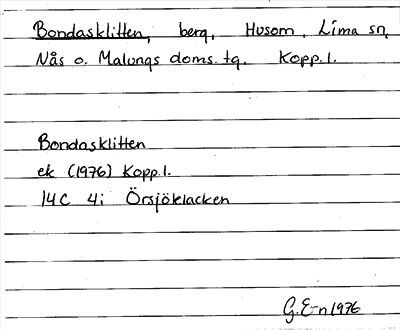 Bondasklitten, berg, Husom, Lima sn,
Nås o. Malungs doms. tg. Kopp. l.
Bondasklitten
ek (1976) Kopp. l.
14C 4i Örsjölelacken
G. E-n 1976